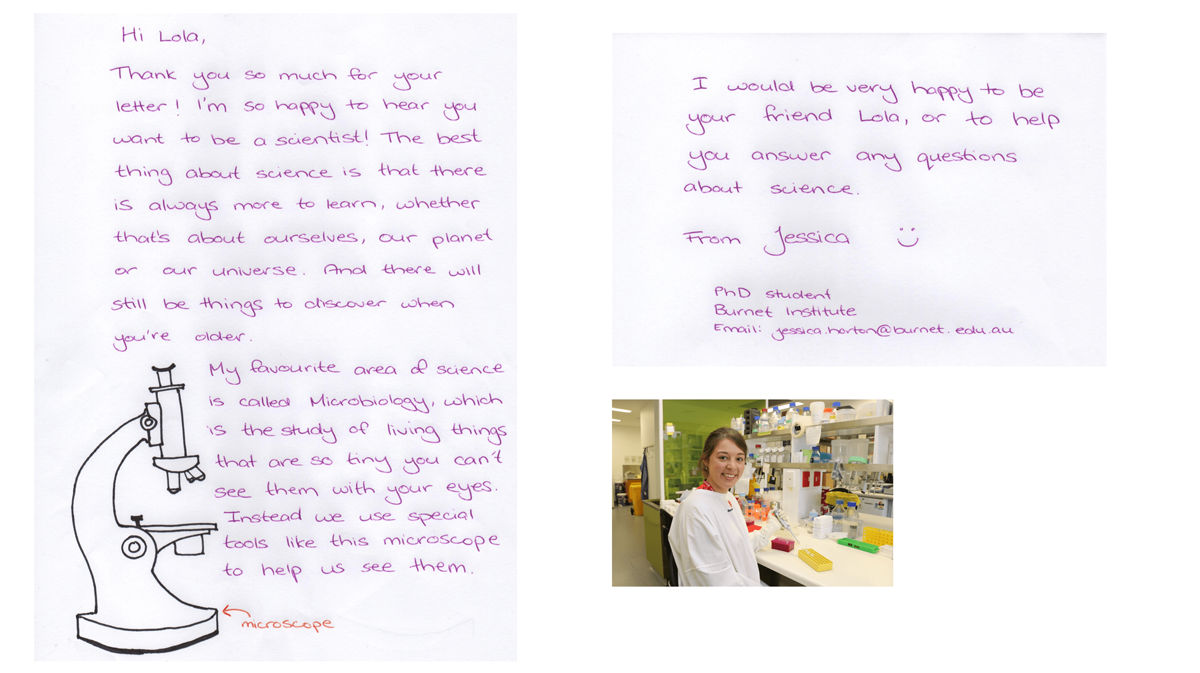 Hi Lola,
Thank you so much for your
letter! I'm so happy to hear you
want to be a scientist! The best
thing about science is that there
is always more to learn, whether
that's about ourselves, our planet
or our universe. And there will
still be things to discover when
you're older.
My favourite area of science
is called Microbiology, which
is the study of living things
that are so tiny you can't
see them with your eyes.
Instead we use special
tools like this microscope
to help us see them.
microscope
I would be very happy to be
your friend Lola, or to help
you answer any questions
about science.
From Jessica
PhD student
Burnet Institute
Email: jessica.horton@burnet.edu.au